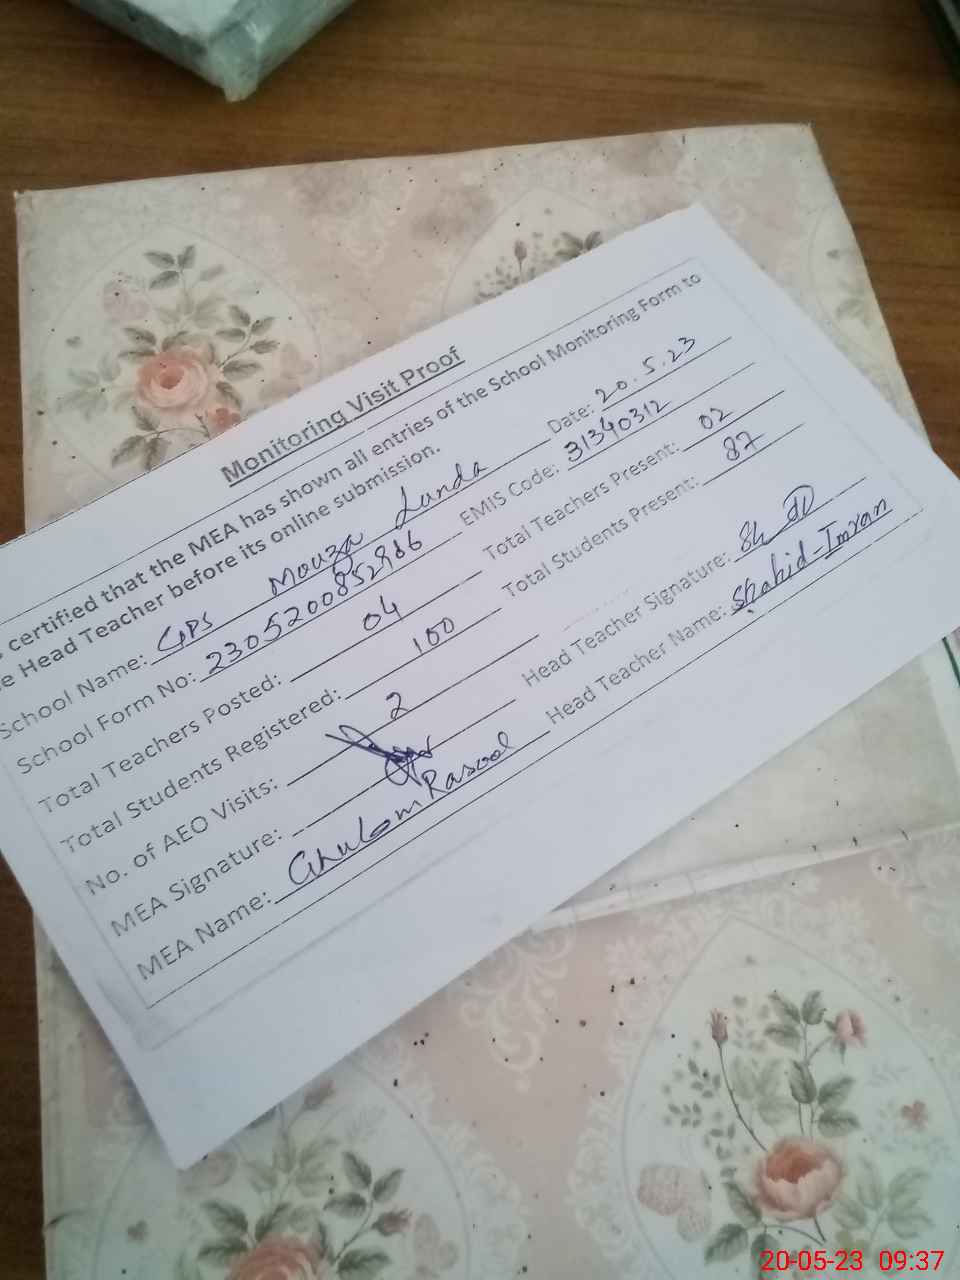 Monitoring Visit Proof
s certified that the MEA has shown all entries of the School Monitoring Form to
e Head Teacher before its online submission.
School Name: GPS Mouza Landa Date: 20.5.23
School Form No: 2305200852986 EMIS Code: 31340312
Total Teachers Posted: 04 Total Teachers Present: 02
Total Students Registered: 100 Total Students Present: 87
No. of AEO Visits: 2
MEA Signature: Head Teacher Signature:
MEA Name: Ghulam Rasool Head Teacher Name: Shahid-Imran
20-05-23 09:37